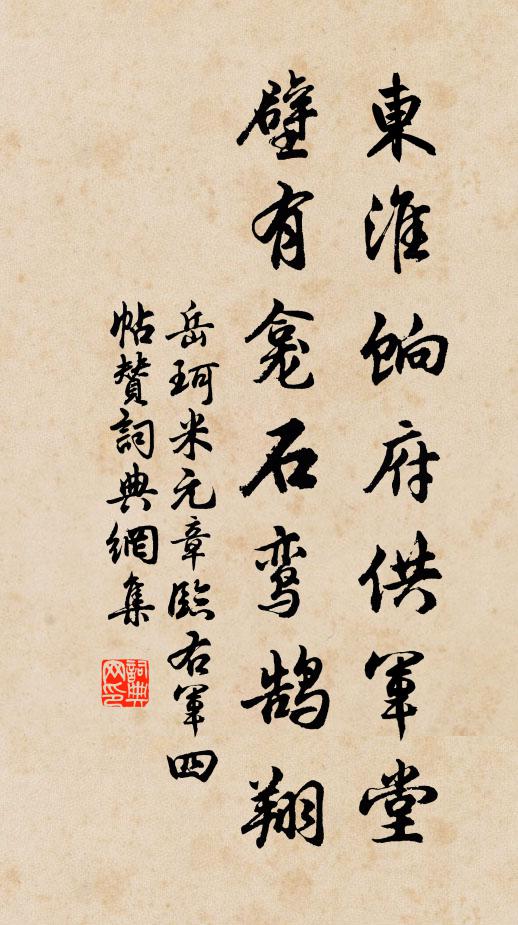 東淮餉府供軍堂
壁有龛石鸾鹄翔
岳珂米元章臨右軍四
帖贊詞典網集
詞典
网印